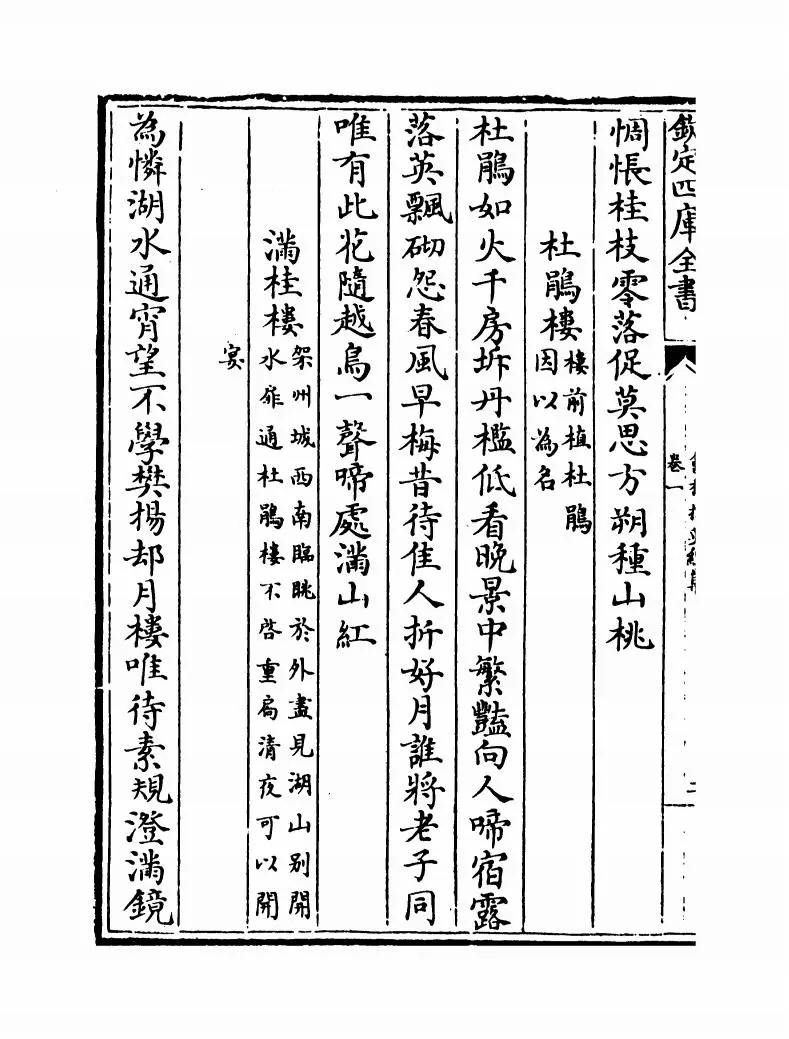 欽定四庫全書
卷一
惆悵桂枝零落促莫思方朔種山桃
杜鵑樓樓前植杜鵑
因以為名
杜鵑如火千房拆丹檻低看晚景中繁豔向人啼宿露
落英飄砌怨春風早梅昔待佳人折好月誰將老子同
唯有此花隨越鳥一聲啼處滿山紅
滿桂樓架州城西南臨眺於外盡見湖山别開
水扉通杜鵑樓不啓重扃清夜可以開
宴
為憐湖水通宵望不學樊楊却月樓唯待素規澄滿鏡